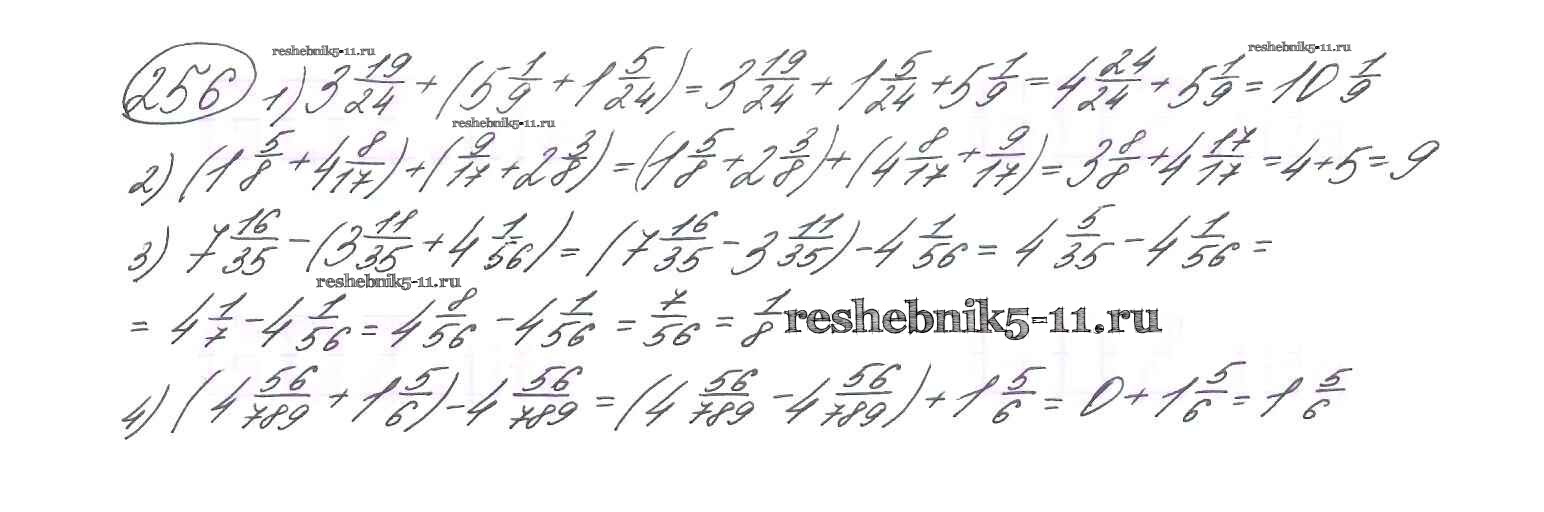 reshebnik5-11.ru reshebnik5-11.ru
256 1) 3 19/24 + (5 1/9 + 1 5/24) = 3 19/24 + 1 5/24 + 5 1/9 = 4 24/24 + 5 1/9 = 10 1/9
reshebnik5-11.ru
2) (1 5/8 + 4 8/17) + (9/17 + 2 3/8) = (1 5/8 + 2 3/8) + (4 8/17 + 9/17) = 3 8/8 + 4 17/17 = 4 + 5 = 9
3) 7 16/35 - (3 11/35 + 4 1/56) = (7 16/35 - 3 11/35) - 4 1/56 = 4 5/35 - 4 1/56 =
reshebnik5-11.ru
= 4 1/7 - 4 1/56 = 4 8/56 - 4 1/56 = 7/56 = 1/8 reshebnik5-11.ru
4) (4 56/789 + 1 5/6) - 4 56/789 = (4 56/789 - 4 56/789) + 1 5/6 = 0 + 1 5/6 = 1 5/6